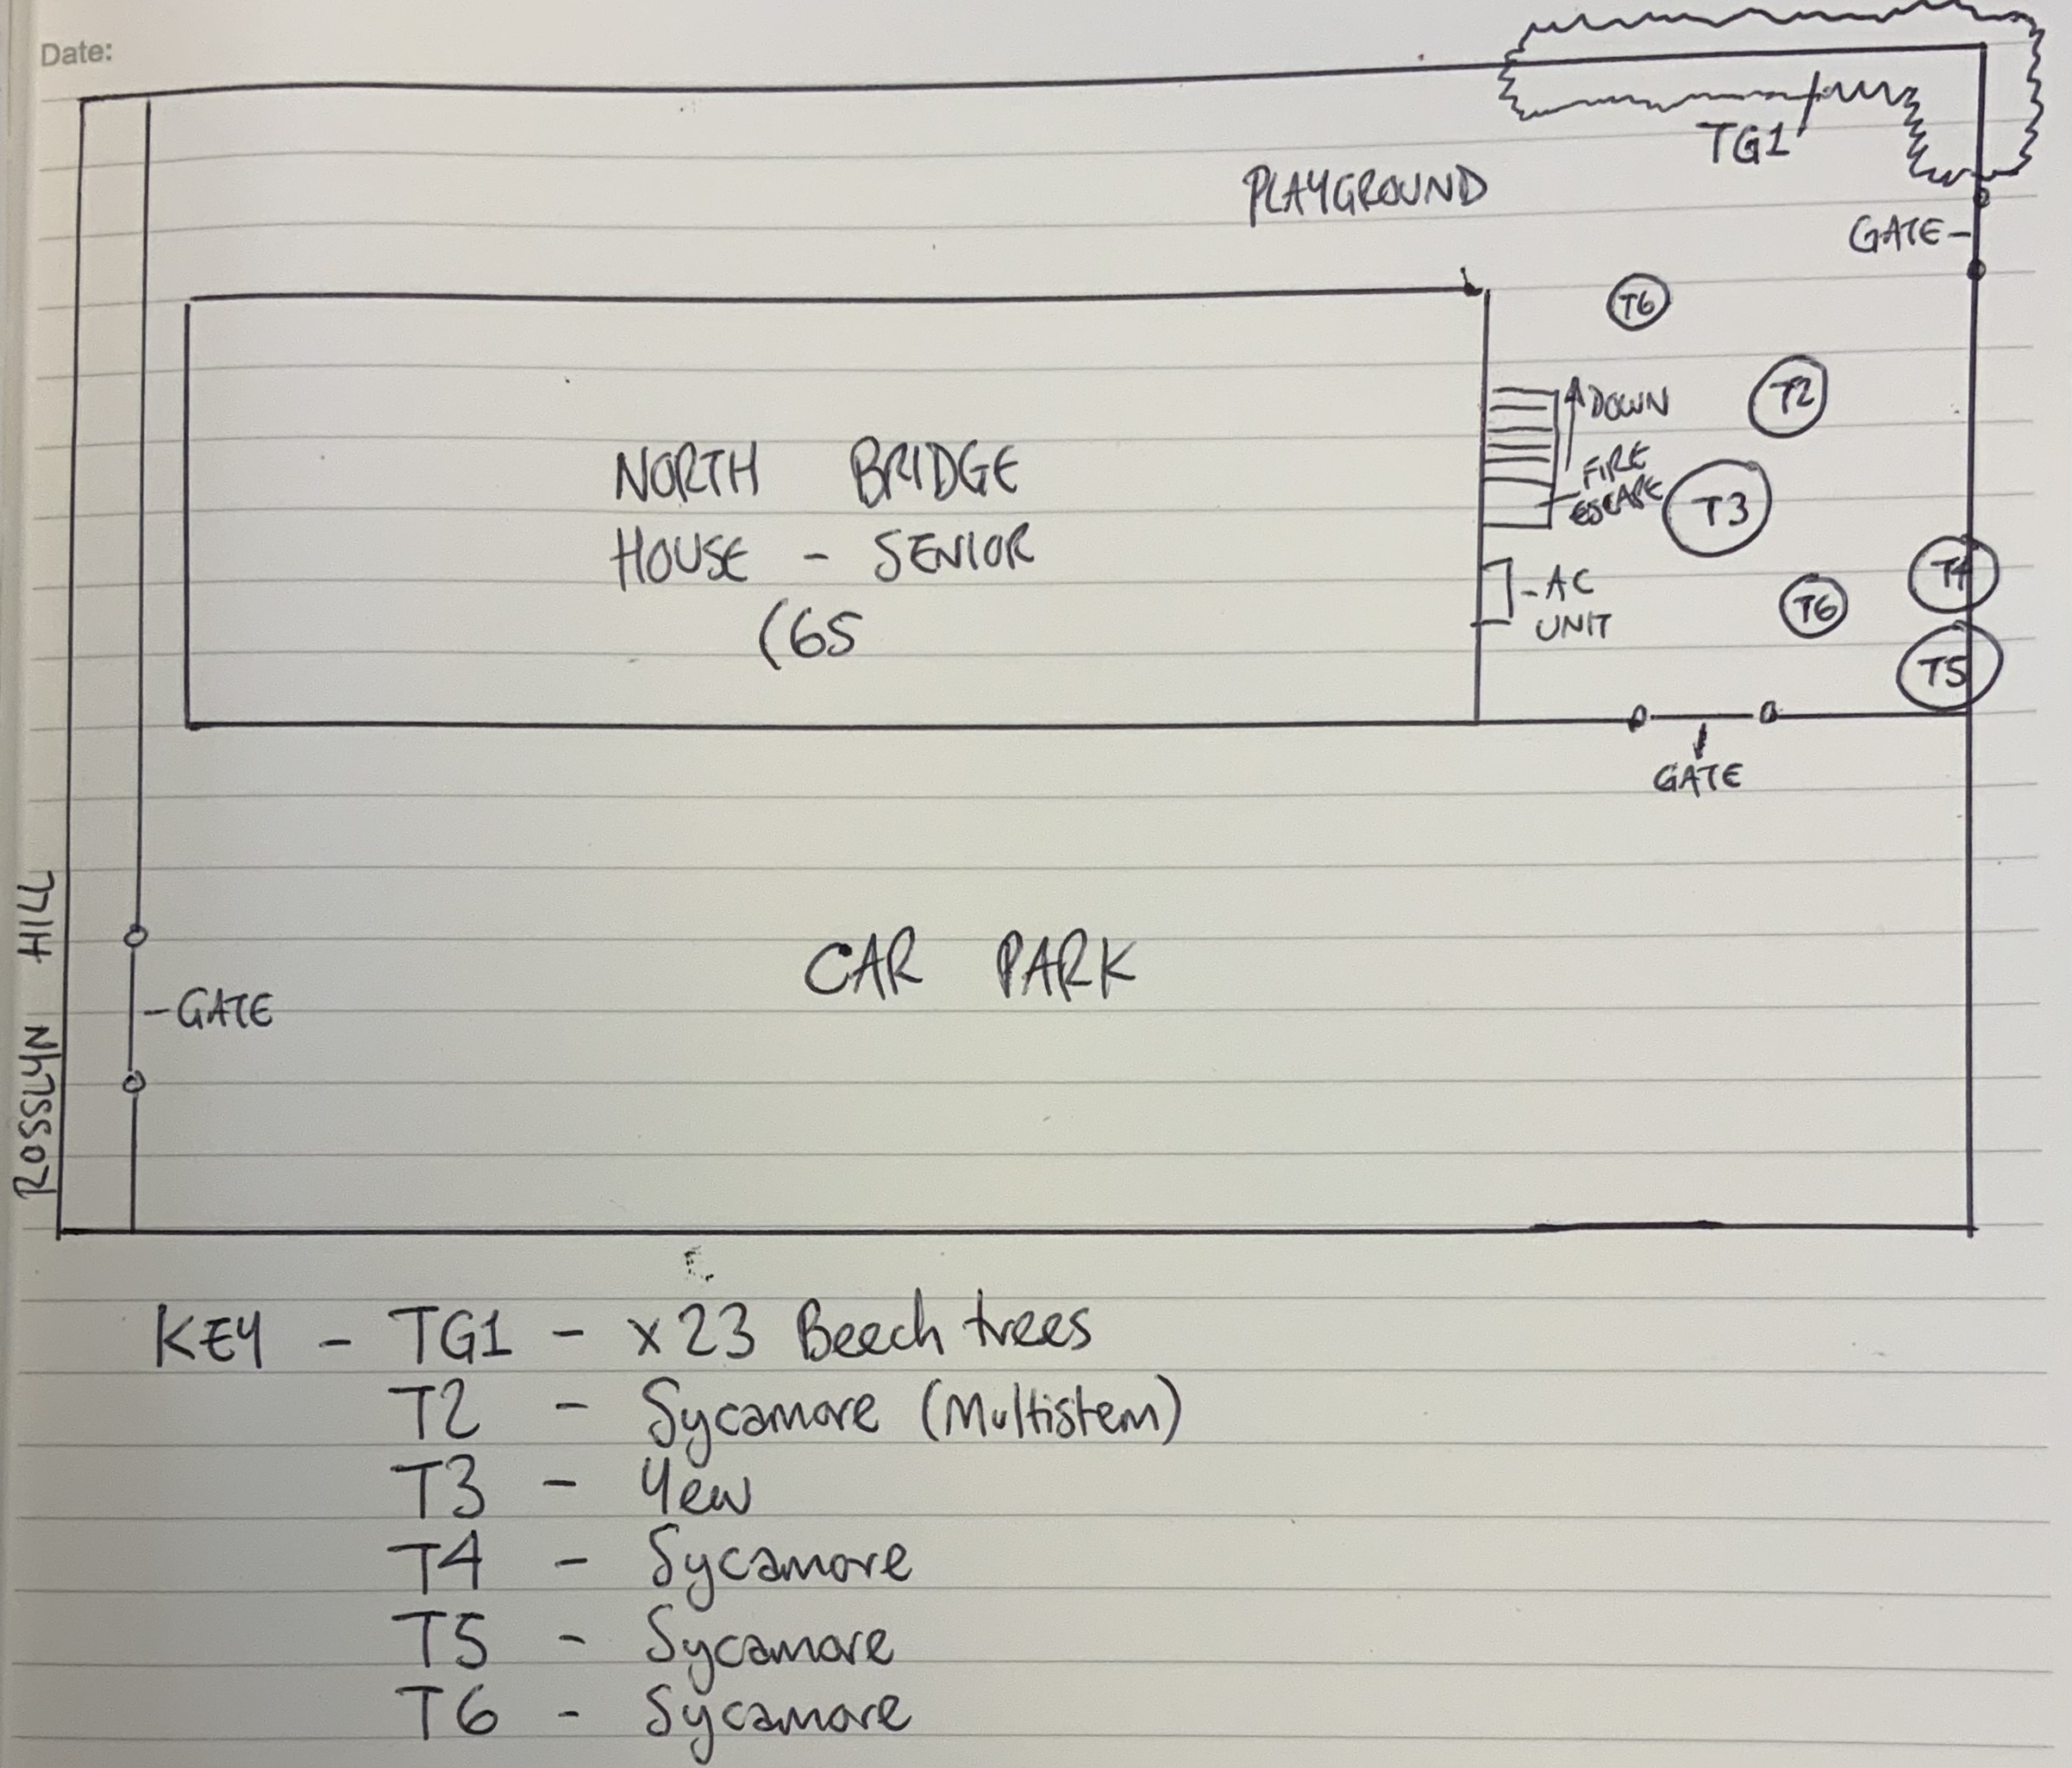 Date:
TG1
PLAYGROUND
GATE
T6
T2
DOWN
FIRE
ESCAPE
T3
NORTH BRIDGE
HOUSE - SENIOR
(65
AC
UNIT
T4
T6
T5
GATE
ROSSLYN HILL
CAR PARK
GATE
KEY - TG1 - x23 Beech trees
T2 - Sycamore (Multistem)
T3 - Yew
T4 - Sycamore
T5 - Sycamore
T6 - Sycamore